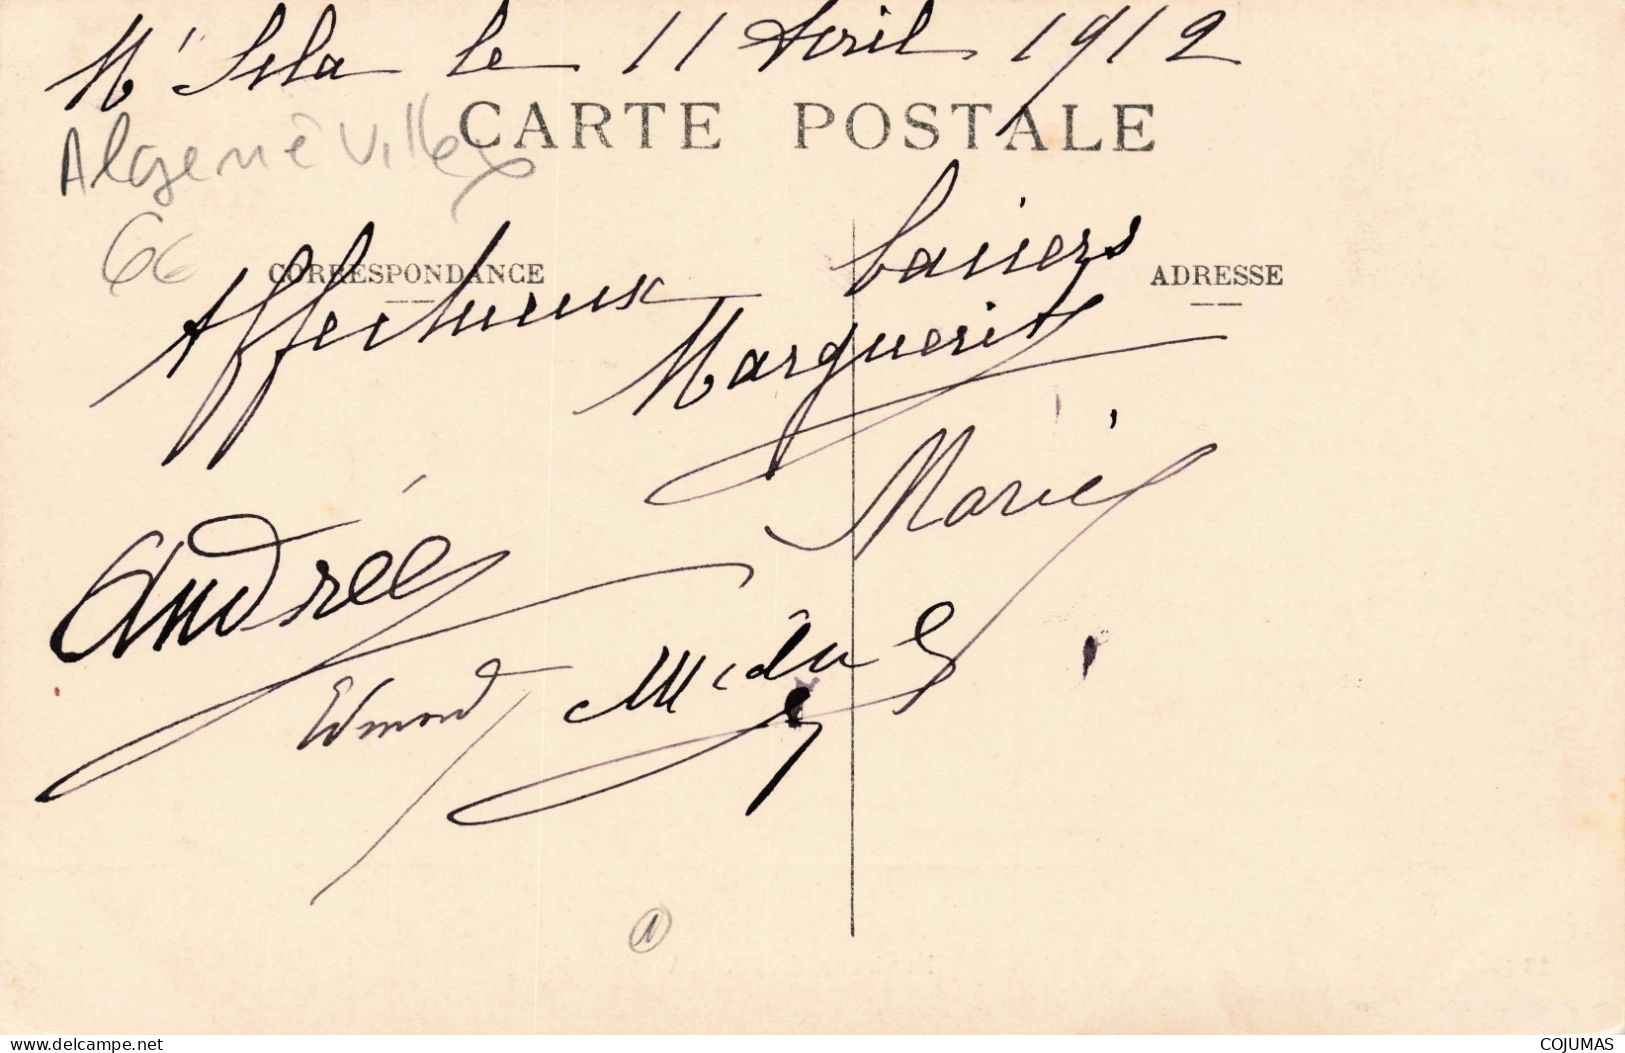 M'Sila le 11 Avril 1912
CARTE POSTALE
Algerie Villes
6€
CORRESPONDANCE
ADRESSE
Affectueux baisers
Marguerite
Marie
Andrée
Edmond
delcampe.net
COJUMAS